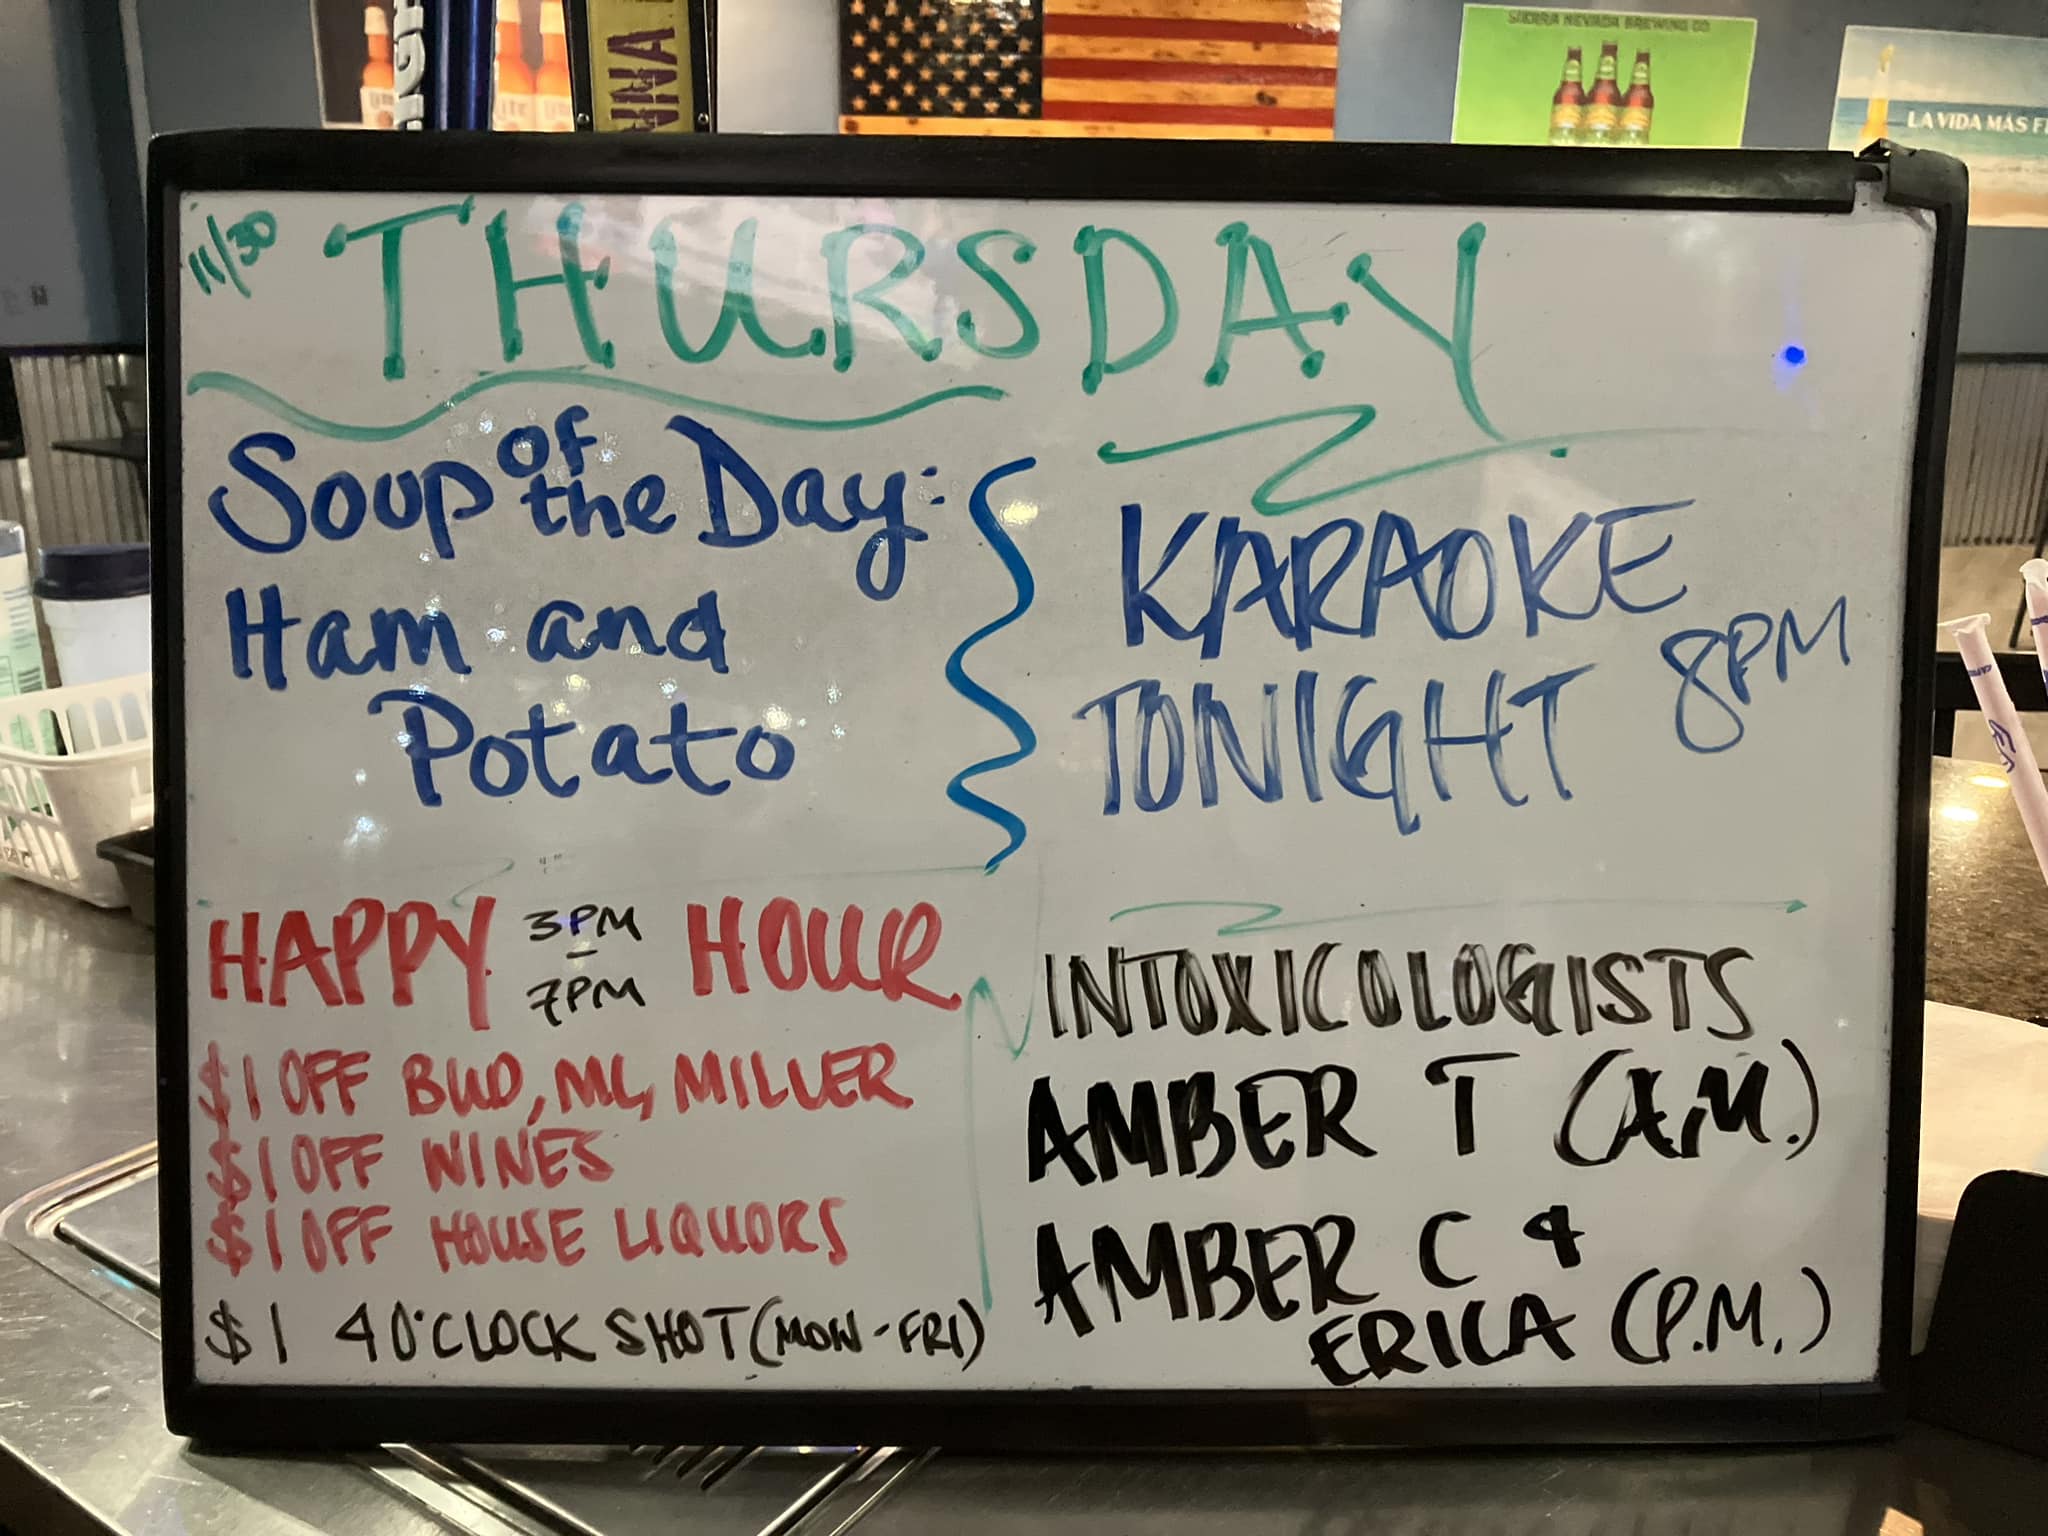 NGH
NNA
SIERRA NEVADA BREWING CO
LA VIDA MÁS FI
Lite
11/30
THURSDAY
Soup of the Day:
Ham and
Potato
KARAOKE
TONIGHT 8PM
HAPPY 3PM - 7PM HOUR
$1 OFF BUD, ML, MILLER
$1 OFF WINES
$1 OFF HOUSE LIQUORS
$1 4 O'CLOCK SHOT (MON-FRI)
INTOXICOLOGISTS
AMBER T (A.M.)
AMBER C &
ERICA (P.M.)